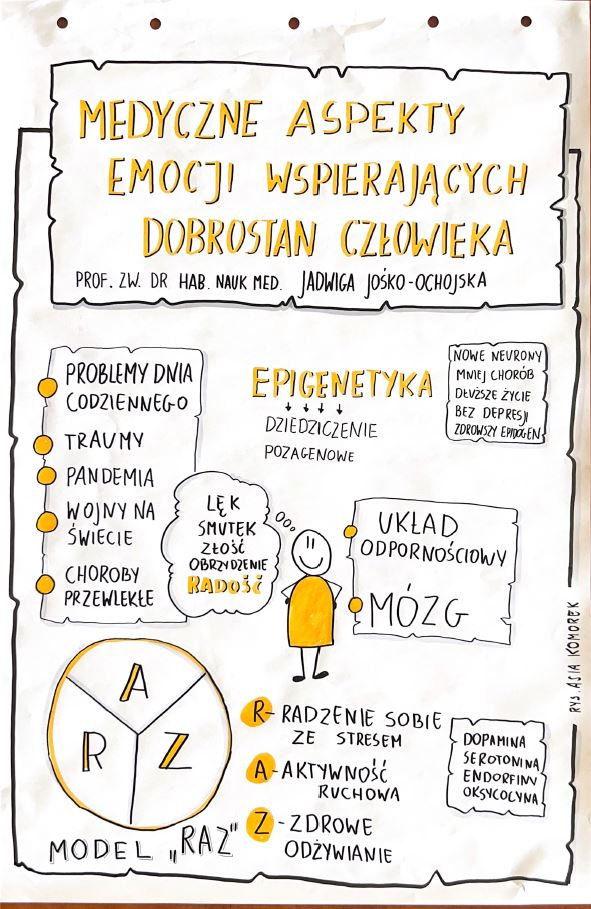 MEDYCZNE ASPEKTY
EMOCJI WSPIERAJĄCYCH
DOBROSTAN CZŁOWIEKA
PROF. ZW. DR HAB. NAUK MED. JADWIGA JOŚKO-OCHOJSKA
PROBLEMY DNIA
CODZIENNEGO
TRAUMY
PANDEMIA
WOJNY NA
ŚWIECIE
CHOROBY
PRZEWLEKŁE
EPIGENETYKA
DZIEDZICZENIE
POZAGENOWE
NOWE NEURONY
MNIEJ CHORÓB
DŁUŻSZE ŻYCIE
BEZ DEPRESJI
ZDROWSZY EPIDOGEN
LĘK
SMUTEK
ZŁOŚĆ
OBRZYDZENIE
RADOŚĆ
UKŁAD
ODPORNOŚCIOWY
MÓZG
A
R Z
MODEL „RAZ"
R - RADZENIE SOBIE
ZE STRESEM
A - AKTYWNOŚĆ
RUCHOWA
Z - ZDROWE
ODŻYWIANIE
DOPAMINA
SEROTONINA
ENDORFINY
OKSYCOLYNA
RYS. ASIA KOMOREK